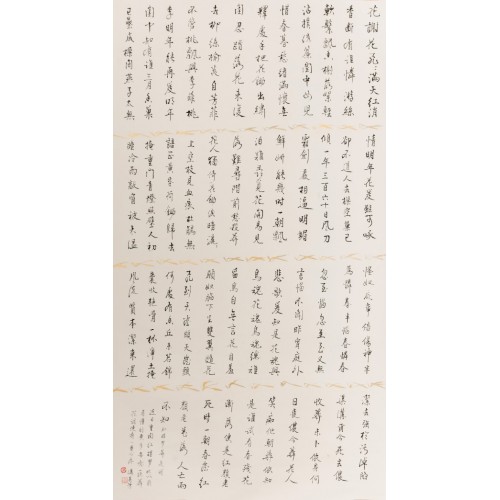 花謝花飛滿天紅消
香斷有誰憐游絲
軟繫飄春榭落絮輕
沾撲繡簾閨中女兒
惜春暮愁緒滿懷無
釋處手把花鋤出繡
閨忍踏落花來復
去柳絲榆莢自芳菲
不管桃飄與李飛桃
李明年能再發明年
閨中知有誰三月香巢
已壘成樑間燕子太無
情明年花發雖可啄
卻不道人去樑空巢已
傾一年三百六十日風刀
霜劍嚴相逼明媚
鮮妍能幾時一朝飄
泊難尋覓花開易見
落難尋階前愁殺葬
花人獨倚花鋤淚暗灑
上空枝見血痕杜鵑無
語正黃昏荷鋤歸去
掩重門青燈照壁人初
睡冷雨敲窗被未溫
怪奴底事倍傷神半
為憐春半惱春憐春
忽至惱忽去至又無
言去不聞昨宵庭外
悲歌發知是花魂與
鳥魂花魂鳥魂總難
留鳥自無言花自羞
願奴脅下生雙翼隨花
飛到天盡頭天盡頭
何處有香丘未若錦
囊收艷骨一抔淨土掩
風流質本潔來還
潔去強於污淖陷
渠溝爾今死去儂
收葬未卜儂身何
日喪儂今葬花人
笑痴他年葬儂知
是誰試看春殘花
漸落便是紅顏老
死時一朝春盡紅
顏老花落人亡兩
不知